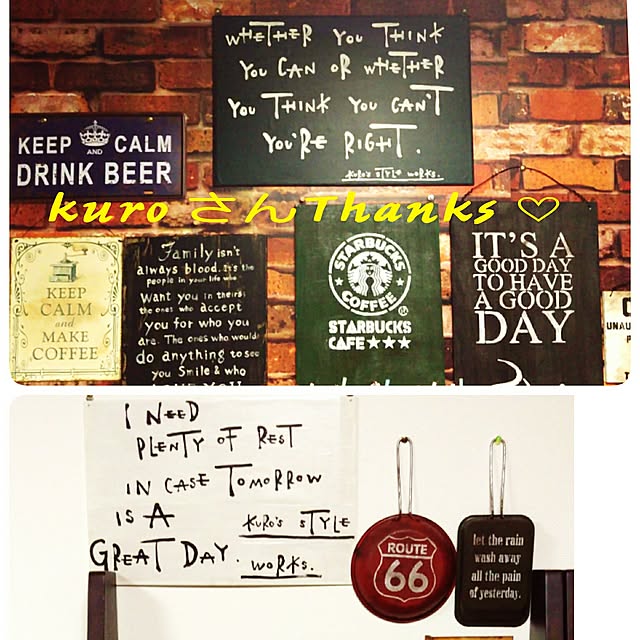 WHETHER YOU THINK
YOU CAN OR WHETHER
YOU THINK YOU CAN'T
YOU'RE RIGHT.
KURO'S STYLE WORKS.
KEEP AND CALM
DRINK BEER
kuro さんThanks ♡
KEEP
CALM
and
MAKE
COFFEE
Family isn't
always blood. It's the
people in your life who
Want you in theirs:
the ones who accept
you for who you
are. The ones who would
do anything to see
you Smile & who
LOVE YOU
STARBUCKS
COFFEE
®
STARBUCKS
CAFE★★★
IT'S A
GOOD DAY
TO HAVE
A GOOD
DAY
UNAU
I NEED
PLENTY OF REST
IN CASE TOMORROW
IS A
GREAT DAY.
KURO'S STYLE
WORKS.
ROUTE
66
let the rain
wash away
all the pain
of yesterday.